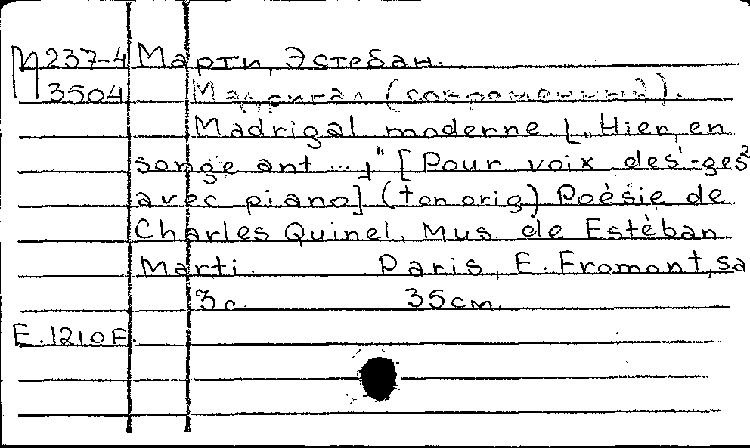 М237-4 Марти, Эстебан.
3504 Мадригал (современный).
Madrigal moderne [„Hier, en
songe ant ..." [Pour voix des-ges
avec piano] (ton orig) Poésie de
Charles Quinel. Mus de Estéban
Marti. Paris, E. Fromont, sa
3c. 35см.
E.1210F.